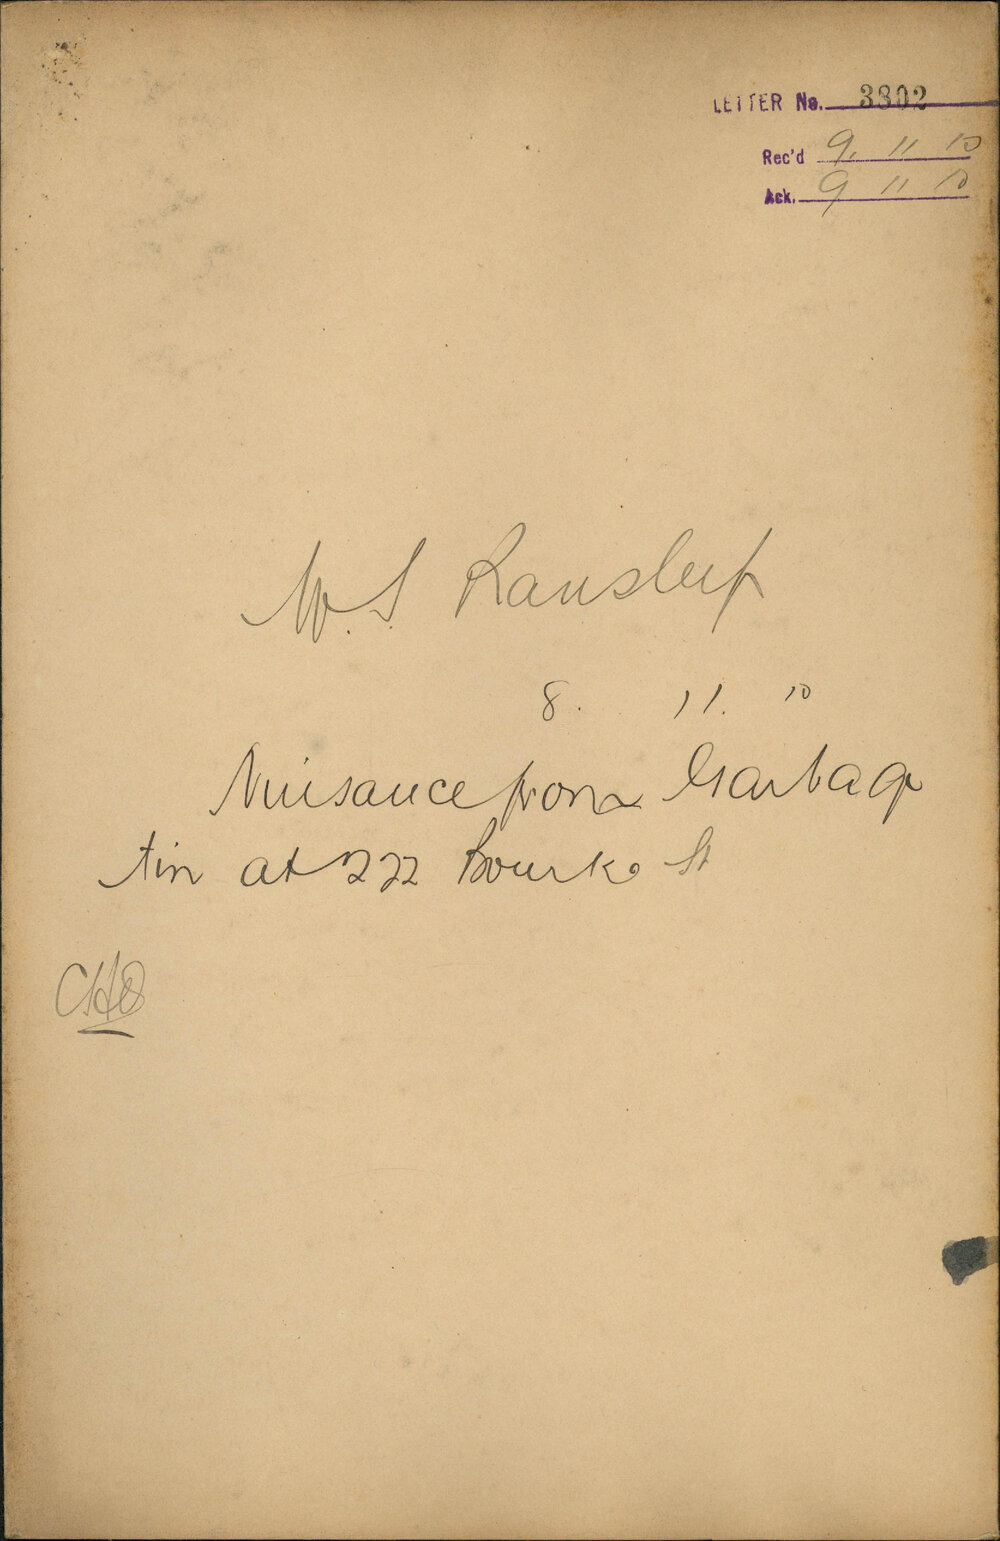 LETTER No. 3302
Rec'd 9. 11 10
Ack. 9 11 10
W. S.
8. 11. 10
Nuisance from Garbage
tin at 222 Bourke St
CHO